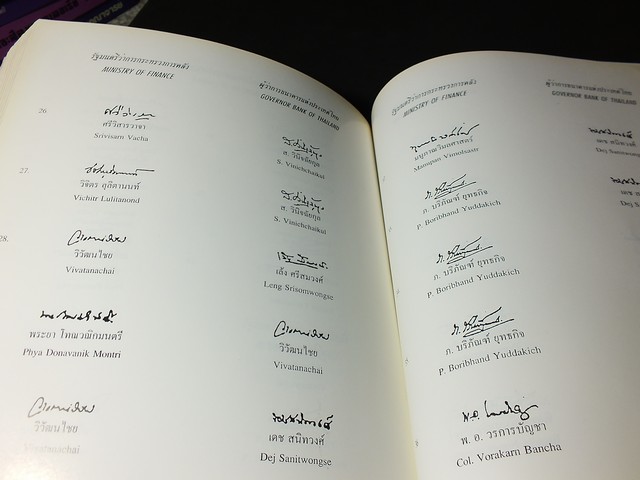 รัฐมนตรีว่าการกระทรวงการคลัง
MINISTRY OF FINANCE
ผู้ว่าการธนาคารแห่งประเทศไทย
GOVERNOR BANK OF THAILAND
26
ศรีวิสารวาจา
Srivisarn Vacha
ส. วินิจฉัยกุล
S. Vinichchaikul
27.
วิจิตร ลุลิตานนท์
Vichitr Lulitanond
ส. วินิจฉัยกุล
S. Vinichchaikul
28.
วิวัฒนไชย
Vivatanachai
เล้ง ศรีสมวงศ์
Leng Srisomwongse
พระยา โทณวณิกมนตรี
Phya Donavanik Montri
วิวัฒนไชย
Vivatanachai
วิวัฒนไชย
Vivatanachai
เดช สนิทวงศ์
Dej Sanitwongse
รัฐมนตรีว่าการกระทรวงการคลัง
MINISTRY OF FINANCE
ผู้ว่าการธนาคารแห่งประเทศไทย
GOVERNOR BANK OF THAILAND
มนูภาณวิมลศาสตร์
เดช สนิทวงศ์
Dej
ภ. บริภัณฑ์ ยุทธกิจ
P. Boribhand Yuddakich
Dej S
ภ. บริภัณฑ์ ยุทธกิจ
P. Boribhand Yuddakich
ภ. บริภัณฑ์ ยุทธกิจ
P. Boribhand Yuddakich
พ. อ. วรการบัญชา
Col. Vorakarn Bancha